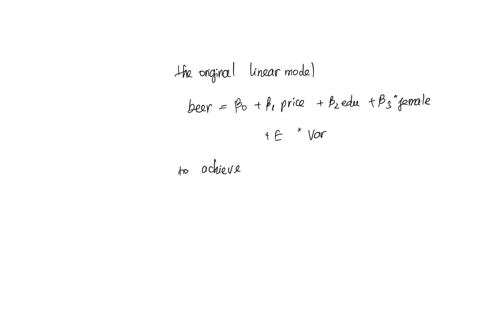 the original linear model
beer = β0 + β1 price + β2 edu + β3 * female
+ E * Var
to achieve